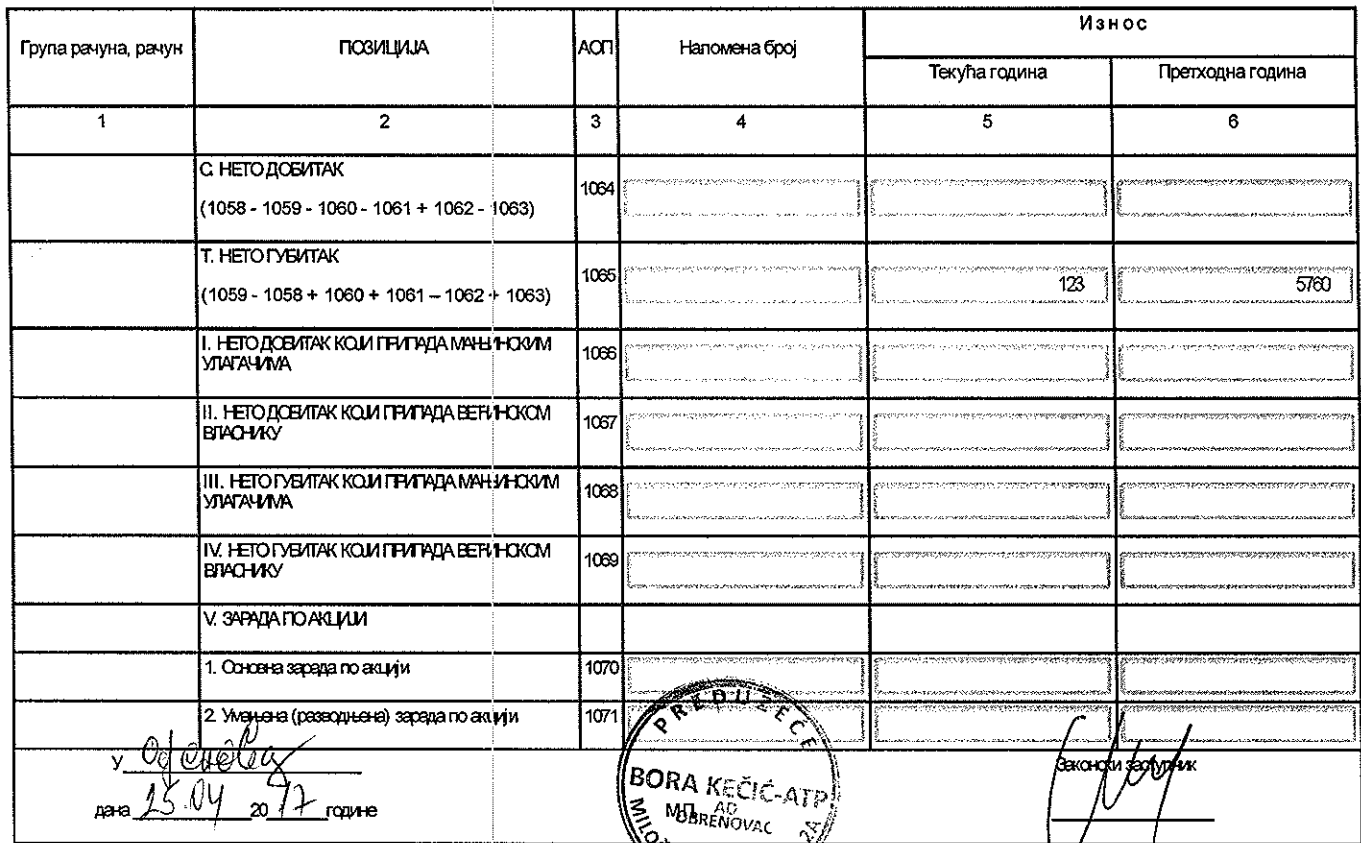 Група рачуна, рачун
ПОЗИЦИЈА
АОП
Напомена број
Износ
Текућа година
Претходна година
1
2
3
4
5
6
С. НЕТО ДОБИТАК
(1058 - 1059 - 1060 - 1061 + 1062 - 1063)
1064
Т. НЕТО ГУБИТАК
(1059 - 1058 + 1060 + 1061 – 1062 + 1063)
1065
123
5760
I. НЕТО ДОБИТАК КОЈИ ПРИПАДА МАЊИНСКИМ
УЛАГАЧИМА
1066
II. НЕТО ДОБИТАК КОЈИ ПРИПАДА ВЕЋИНСКОМ
ВЛАСНИКУ
1067
III. НЕТО ГУБИТАК КОЈИ ПРИПАДА МАЊИНСКИМ
УЛАГАЧИМА
1068
IV. НЕТО ГУБИТАК КОЈИ ПРИПАДА ВЕЋИНСКОМ
ВЛАСНИКУ
1069
V. ЗАРАДА ПО АКЦИЈИ
1. Основна зарада по акцији
1070
2. Умањена (разводњена) зарада по акцији
1071
У
дана 25.04 2017 године
PREDUZEĆE
BORA KEČIĆ-ATP
М.П. AD
OBRENOVAC
Законски заступник